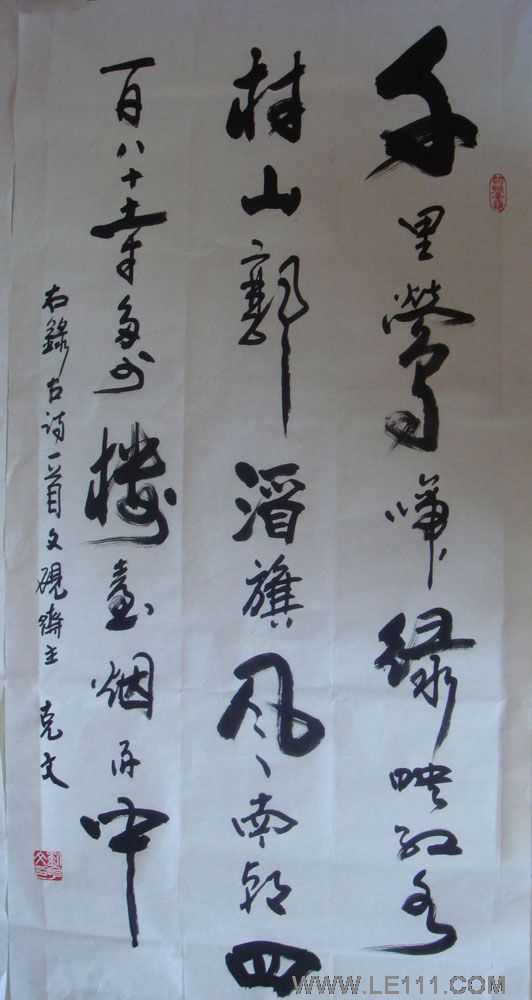 千里鶯啼綠映紅水
村山郭酒旗风南朝四
百八十寺多少樓臺烟雨中
右錄古诗一首文硯齋主 克文
WWW.LE111.COM